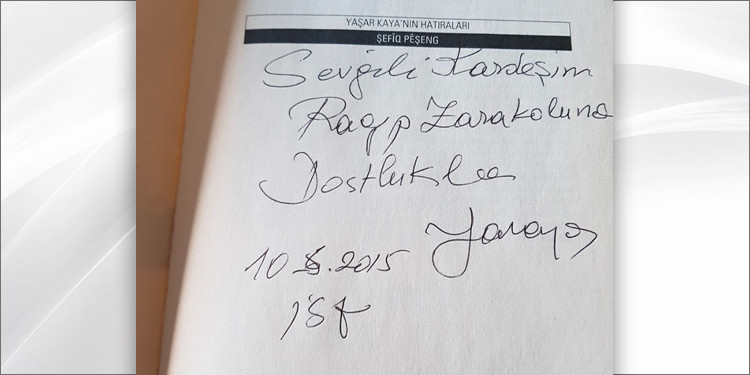 YAŞAR KAYA'NIN HATIRALARI
ŞEFİQ PÊŞENG
Sevgili Kardeşim
Ragıp Zarakoluna
Dostlukla
10 .2015
İst